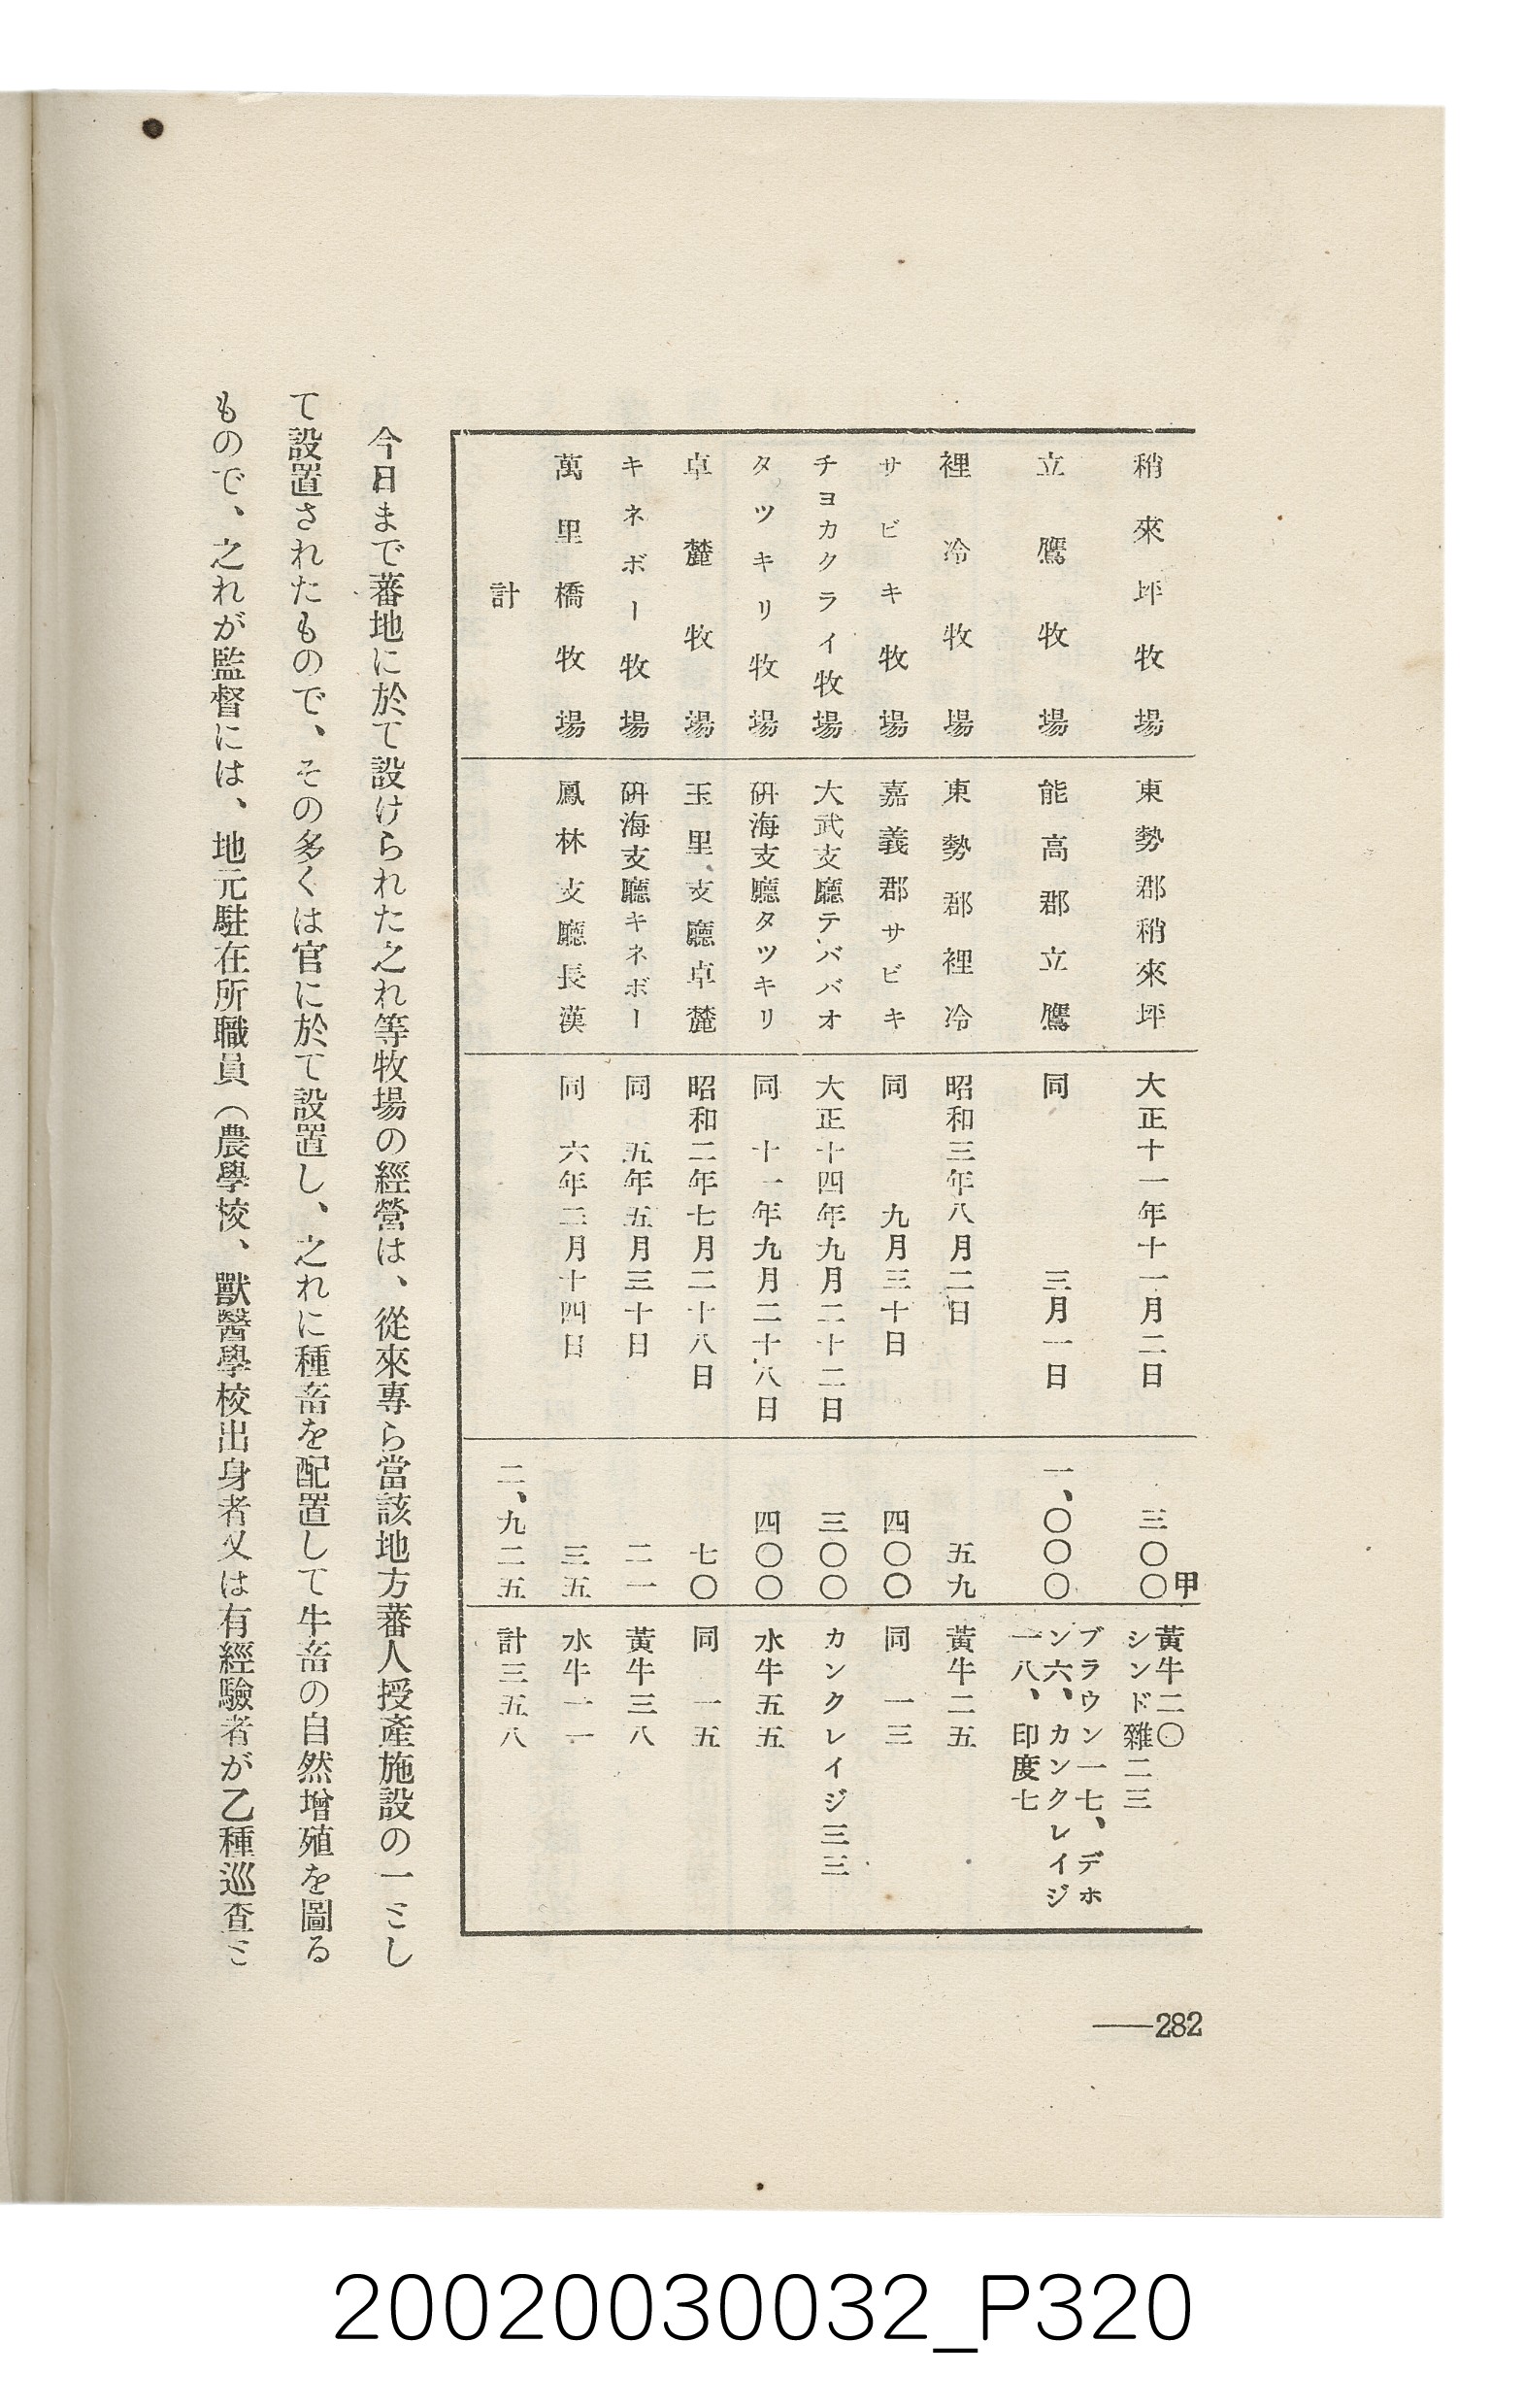 稍來坪牧場 東勢郡稍來坪 大正十一年十一月二日 三〇〇甲 黃牛二〇
シンド雜二三
立鷹牧場 能高郡立鷹 同 三月一日 一、〇〇〇 ブラウン一七、デホ
ン六、カンクレイジ
一八、印度七
裡冷牧場 東勢郡裡冷 昭和三年八月二日 五九 黃牛二五
サビキ牧場 嘉義郡サビキ 同 九月三十日 四〇〇 同 一三
チヨカクライ牧場 大武支廳テバパオ 大正十四年九月二十二日 三〇〇 カンクレイジ三三
タツキリ牧場 研海支廳タツキリ 同 十一年九月二十八日 四〇〇 水牛五五
卓麓牧場 玉里支廳卓麓 昭和二年七月二十八日 七〇 同 一五
キネボー牧場 研海支廳キネボー 同 五年五月三十日 二一 黃牛三八
萬里橋牧場 鳳林支廳長漢 同 六年二月十四日 三五 水牛一一
計 二、九二五 計三五八
今日まで蕃地に於て設けられた之れ等牧場の經營は、從來專ら當該地方蕃人授產施設の一とし
て設置されたもので、その多くは官に於て設置し、之れに種畜を配置して牛畜の自然增殖を圖る
もので、之れが監督には、地元駐在所職員（農學校、獸醫學校出身者又は有經驗者が乙種巡査と
——282
20020030032_P320